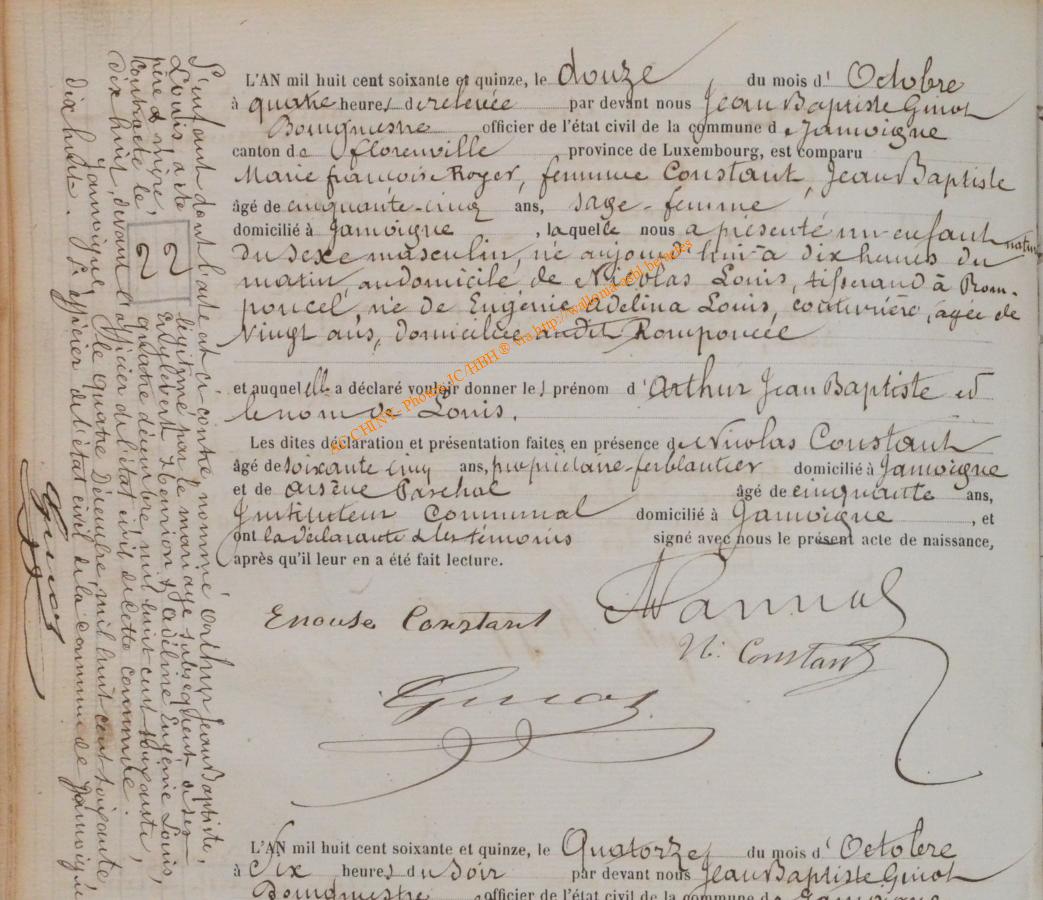 L'AN mil huit cent soixante et quinze, le douze du mois d' Octobre
à quatre heures de relevée par devant nous Jean Baptiste Guiot
Bourgmestre officier de l'état civil de la commune de Jamoigne
canton de Florenville province de Luxembourg, est comparu
Marie françoise Royer, femme Constant, Jean Baptiste
âgé de cinquante-cinq ans, sage-femme
domicilié à Jamoigne , laquelle nous a présenté un enfant
du sexe masculin, né aujourd'hui à dix heures du
matin, au domicile de Nicolas Louis, tisserand à Rom-
poncel, né de Eugénie Adelina Louis, couturière, âgée de
vingt ans, domiciliée audit Romponcel
et auquel elle a déclaré vouloir donner les prénom d' Arthur Jean Baptiste et
le nom de Louis.
Les dites déclaration et présentation faites en présence de Nicolas Constant
âgé de soixante cinq ans, propriétaire-ferblantier domicilié à Jamoigne
et de arsène Paschal âgé de cinquante ans,
Instituteur Communal domicilié à Jamoigne , et
ont la déclarante & les témoins signé avec nous le présent acte de naissance,
après qu'il leur en a été fait lecture.
Constant
N. Constant
Guiot
L'enfant dont l'acte est ci-contre, nommé Arthur Jean Baptiste,
Louis, a été légitimé par le mariage subséquent de ses
père & mère, Englebert Henrion & Adeline Eugénie Louis,
contracté le quatre décembre, mil huit cent soixante,
dix huit, devant l'officier de l'état civil de cette commune.
Jamoigne, le quatre Décembre, mil huit cent soixante,
dix huit. L'officier de l'état civil de la commune de Jamoigne
Guiot
2 2
AC CHINY - Photos JC/HBH ® via http://wallonia-asbl.be/teles
L'AN mil huit cent soixante et quinze, le Quatorze du mois d' Octobre
à Six heures du Soir par devant nous Jean Baptiste Guiot
Bourgmestre officier de l'état civil de la commune de Jamoigne